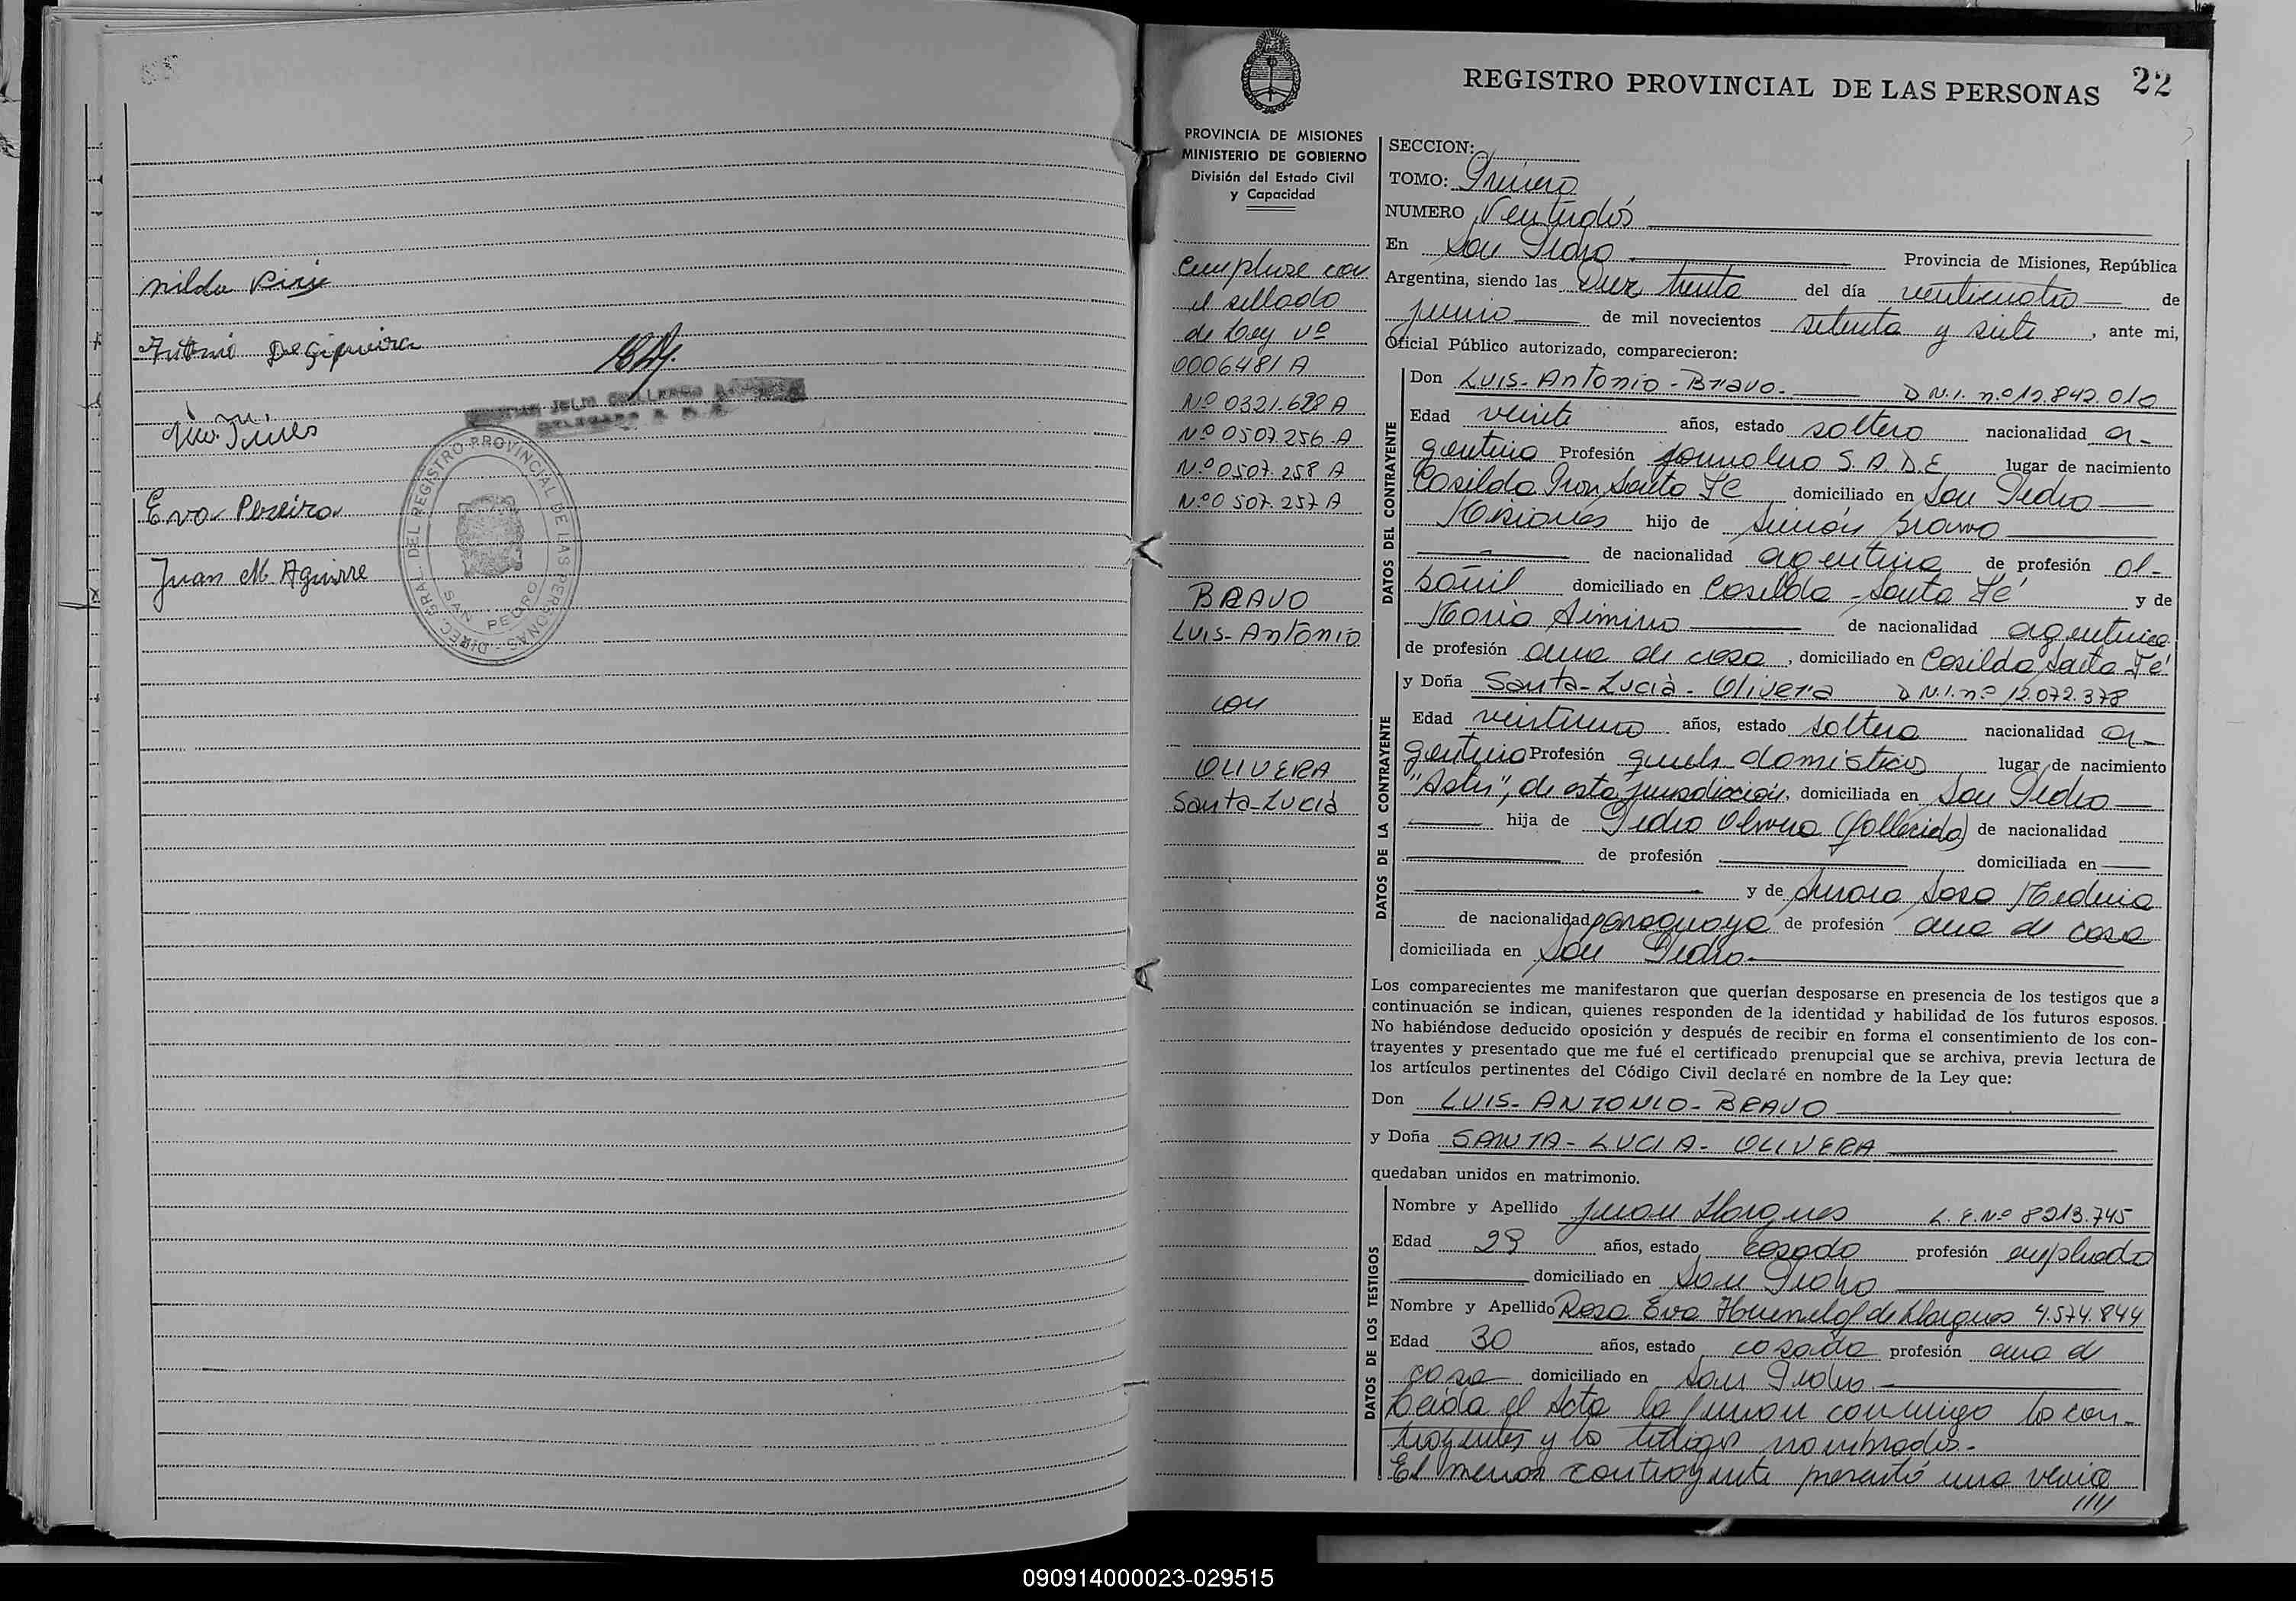 Nilda
Antonio De Siqueira
Eva Pereira
Juan M. Aguirre
DIREC. GRAL. DEL REGISTRO PROVINCIAL DE LAS PERSONAS
SAN PEDRO
REGISTRO PROVINCIAL DE LAS PERSONAS 22
PROVINCIA DE MISIONES
MINISTERIO DE GOBIERNO
División del Estado Civil
y Capacidad
el sellado
de Ley Nº
0006481 A
Nº 0321.628 A
Nº 0507.256 A
Nº 0507.258 A
Nº 0507.257 A
BRAVO
LUIS-Antonio
con
OLIVERA
Santa-Lucia
SECCION:
TOMO: Primero
NUMERO Veintidós
En San Pedro Provincia de Misiones, República
Argentina, siendo las Diez treinta del día veinticuatro de
junio de mil novecientos setenta y siete, ante mi,
Oficial Público autorizado, comparecieron:
DATOS DEL CONTRAYENTE
Don Luis-Antonio-Bravo- D.N.I. nº 12.842.010
Edad veinte años, estado soltero nacionalidad ar-
gentina Profesión jornalero S.A.D.E. lugar de nacimiento
Casilda Prov. Santa Fé domiciliado en San Pedro
Misiones hijo de Simón Bravo
de nacionalidad argentina de profesión al-
bañil domiciliado en Casilda - Santa Fé y de
María de nacionalidad argentina
de profesión ama de casa, domiciliado en Casilda Santa Fé
DATOS DE LA CONTRAYENTE
y Doña Santa-Lucia-Olivera D.N.I. nº 12.072.378
Edad veintiuno años, estado soltera nacionalidad ar-
gentina Profesión domésticos lugar de nacimiento
de esta jurisdicción, domiciliada en San Pedro
hija de Pedro Olivera (fallecido) de nacionalidad
de profesión domiciliada en
y de Aurora Sosa Medina
de nacionalidad paraguaya de profesión ama de casa
domiciliada en San Pedro.
Los comparecientes me manifestaron que querían desposarse en presencia de los testigos que a
continuación se indican, quienes responden de la identidad y habilidad de los futuros esposos.
No habiéndose deducido oposición y después de recibir en forma el consentimiento de los con-
trayentes y presentado que me fué el certificado prenupcial que se archiva, previa lectura de
los artículos pertinentes del Código Civil declaré en nombre de la Ley que:
Don LUIS-ANTONIO-BRAVO
y Doña SANTA-LUCIA-OLIVERA
quedaban unidos en matrimonio.
DATOS DE LOS TESTIGOS
Nombre y Apellido Juan L.E. Nº 8213.745
Edad 29 años, estado casado profesión empleado
domiciliado en San Pedro
Nombre y Apellido Rosa Eva de 4.574.844
Edad 30 años, estado casada profesión ama de
casa domiciliado en San Pedro.-
Leída el Acta la firman conmigo los con-
trayentes y los testigos nombrados.-
El menor contrayente presentó una venia
////
090914000023-029515